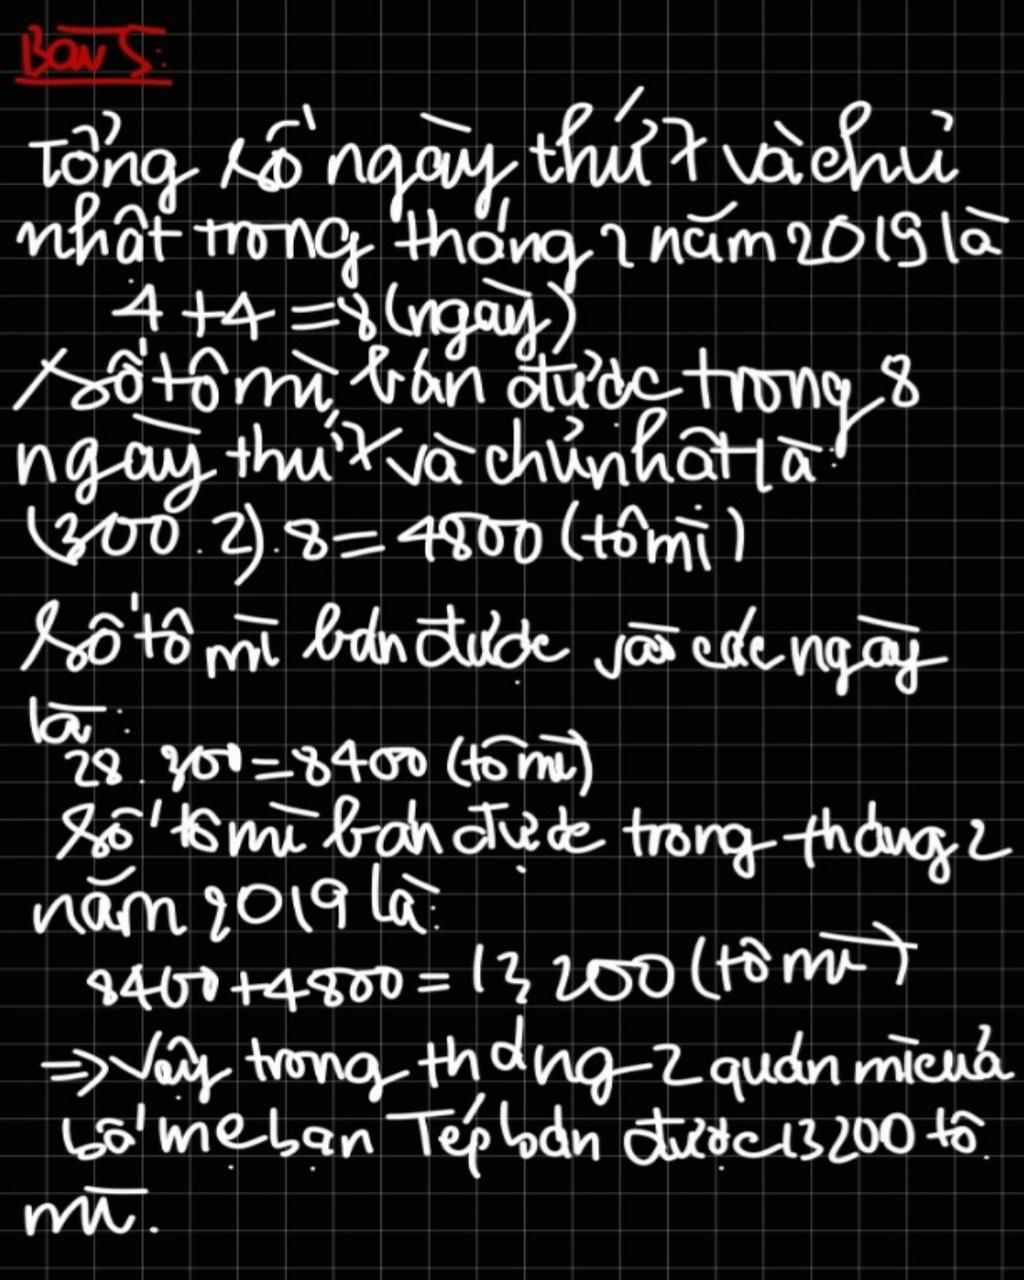 Bài 5:
Tổng số ngày thứ 7 và chủ
nhật trong tháng 2 năm 2019 là
4 + 4 = 8 (ngày)
Số tô mì bán được trong 8
ngày thứ 7 và chủ nhật là:
(300.2).8 = 4800 (tô mì)
Số tô mì bán được các ngày
là:
28.300 = 8400 (tô mì)
Số tô mì bán được trong tháng 2
năm 2019 là:
8400 + 4800 = 13 200 (tô mì)
⇒ Vậy trong tháng 2 quán mì của
bố mẹ bạn Tép bán được 13200 tô
mì.